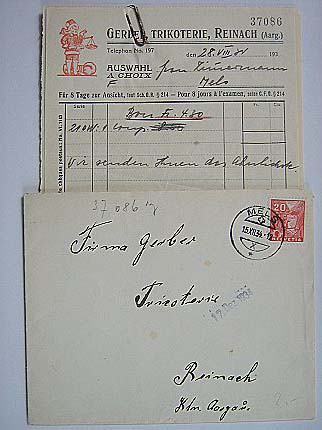 37086
GERBER, TRIKOTERIE, REINACH (Aarg.)
Telephon No. 197
28.VIII.34
AUSWAHL
A CHOIX
Frau Zimmermann
Mels
Für 8 Tage zur Ansicht, laut Sch. O. R. § 214 — Pour 8 jours à l'examen, selon C. F. O. § 214
Fr. 4.80
Wir senden Ihnen das Ähnlichste.
37086
MELS
20
HELVETIA
Firma Gerber
Tricoterie
Reinach
Ktn Aargau